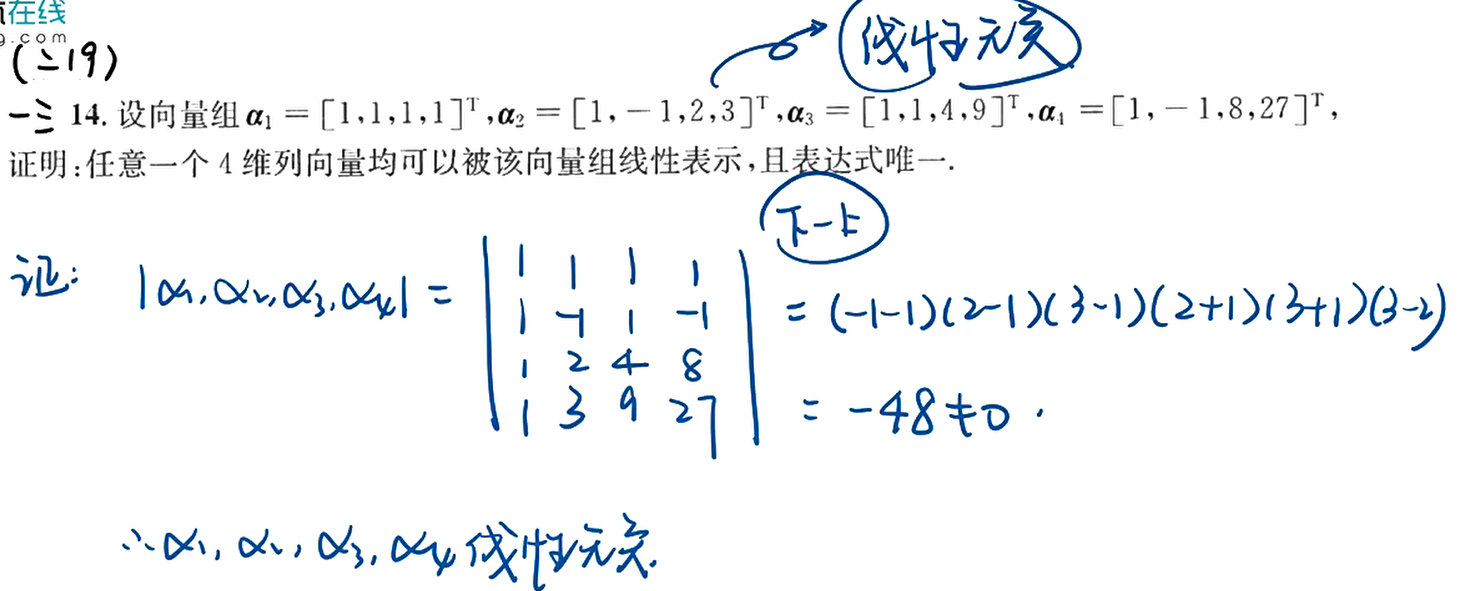 在线
g.com
(二19)
一三 14. 设向量组 α₁ = [1,1,1,1]ᵀ,α₂ = [1,-1,2,3]ᵀ,α₃ = [1,1,4,9]ᵀ,α₄ = [1,-1,8,27]ᵀ,
线性无关
证明:任意一个 4 维列向量均可以被该向量组线性表示,且表达式唯一.
下-上
证: |α₁,α₂,α₃,α₄| = | 1 1 1 1 |
| 1 -1 1 -1 | = (-1-1)(2-1)(3-1)(2+1)(3+1)(3-2)
| 1 2 4 8 |
| 1 3 9 27 | = -48≠0.
∴α₁, α₂, α₃, α₄ 线性无关.